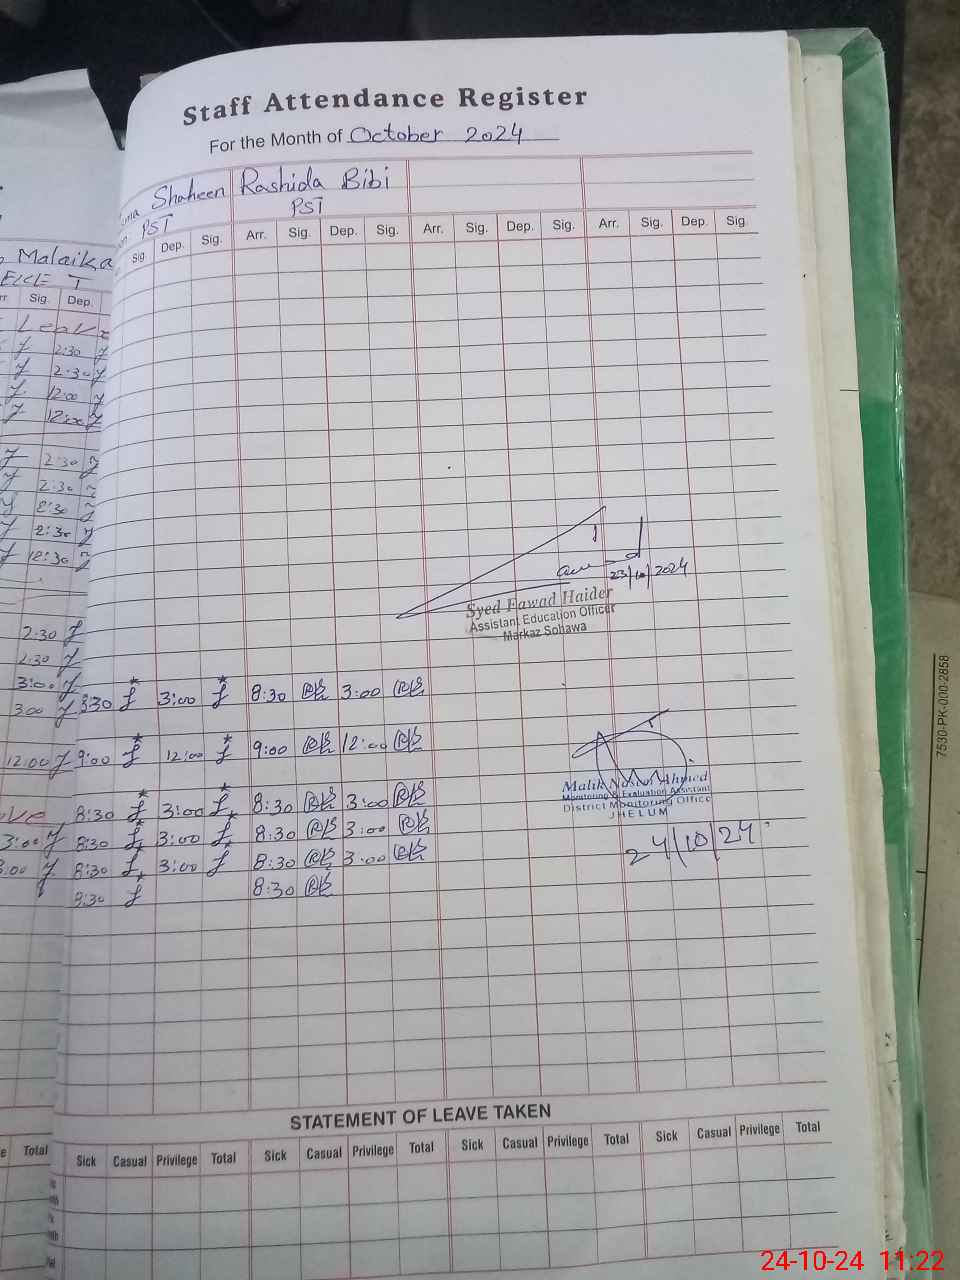 Staff Attendance Register
For the Month of October 2024
Shaheen Rashida Bibi
PST PST
Sig. Dep. Sig. Arr. Sig. Dep. Sig. Arr. Sig. Dep. Sig. Arr. Sig. Dep. Sig.
Malaika
Sig. Dep.
2:30
2:30
12:00
12:00
2:30
2:30
2:30
2:30
12:30
23/10/2024
Syed Fawad Haider
Assistant Education Officer
Markaz Sohawa
2:30
2:30
3:00
3:00 8:30 3:00 8:30 3:00
12:00 9:00 12:00 9:00 12:00
8:30 3:00 8:30 3:00
3:00 8:30 3:00 8:30 3:00
3:00 8:30 3:00 8:30 3:00
8:30 8:30
Monitoring & Evaluation Assistant
District Monitoring Office
JHELUM
24/10/24
STATEMENT OF LEAVE TAKEN
Total Sick Casual Privilege Total Sick Casual Privilege Total Sick Casual Privilege Total Sick Casual Privilege Total
7530-PK-000-2858
24-10-24 11:22